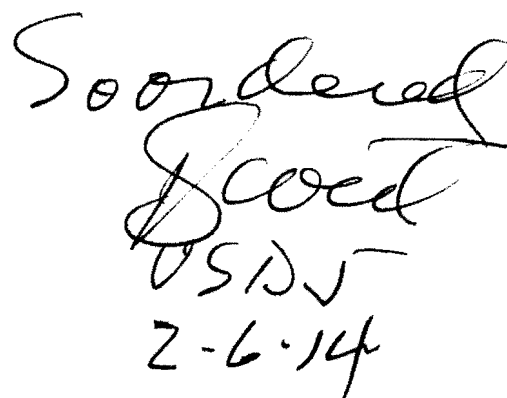 So ordered
USDJ
2-6-14